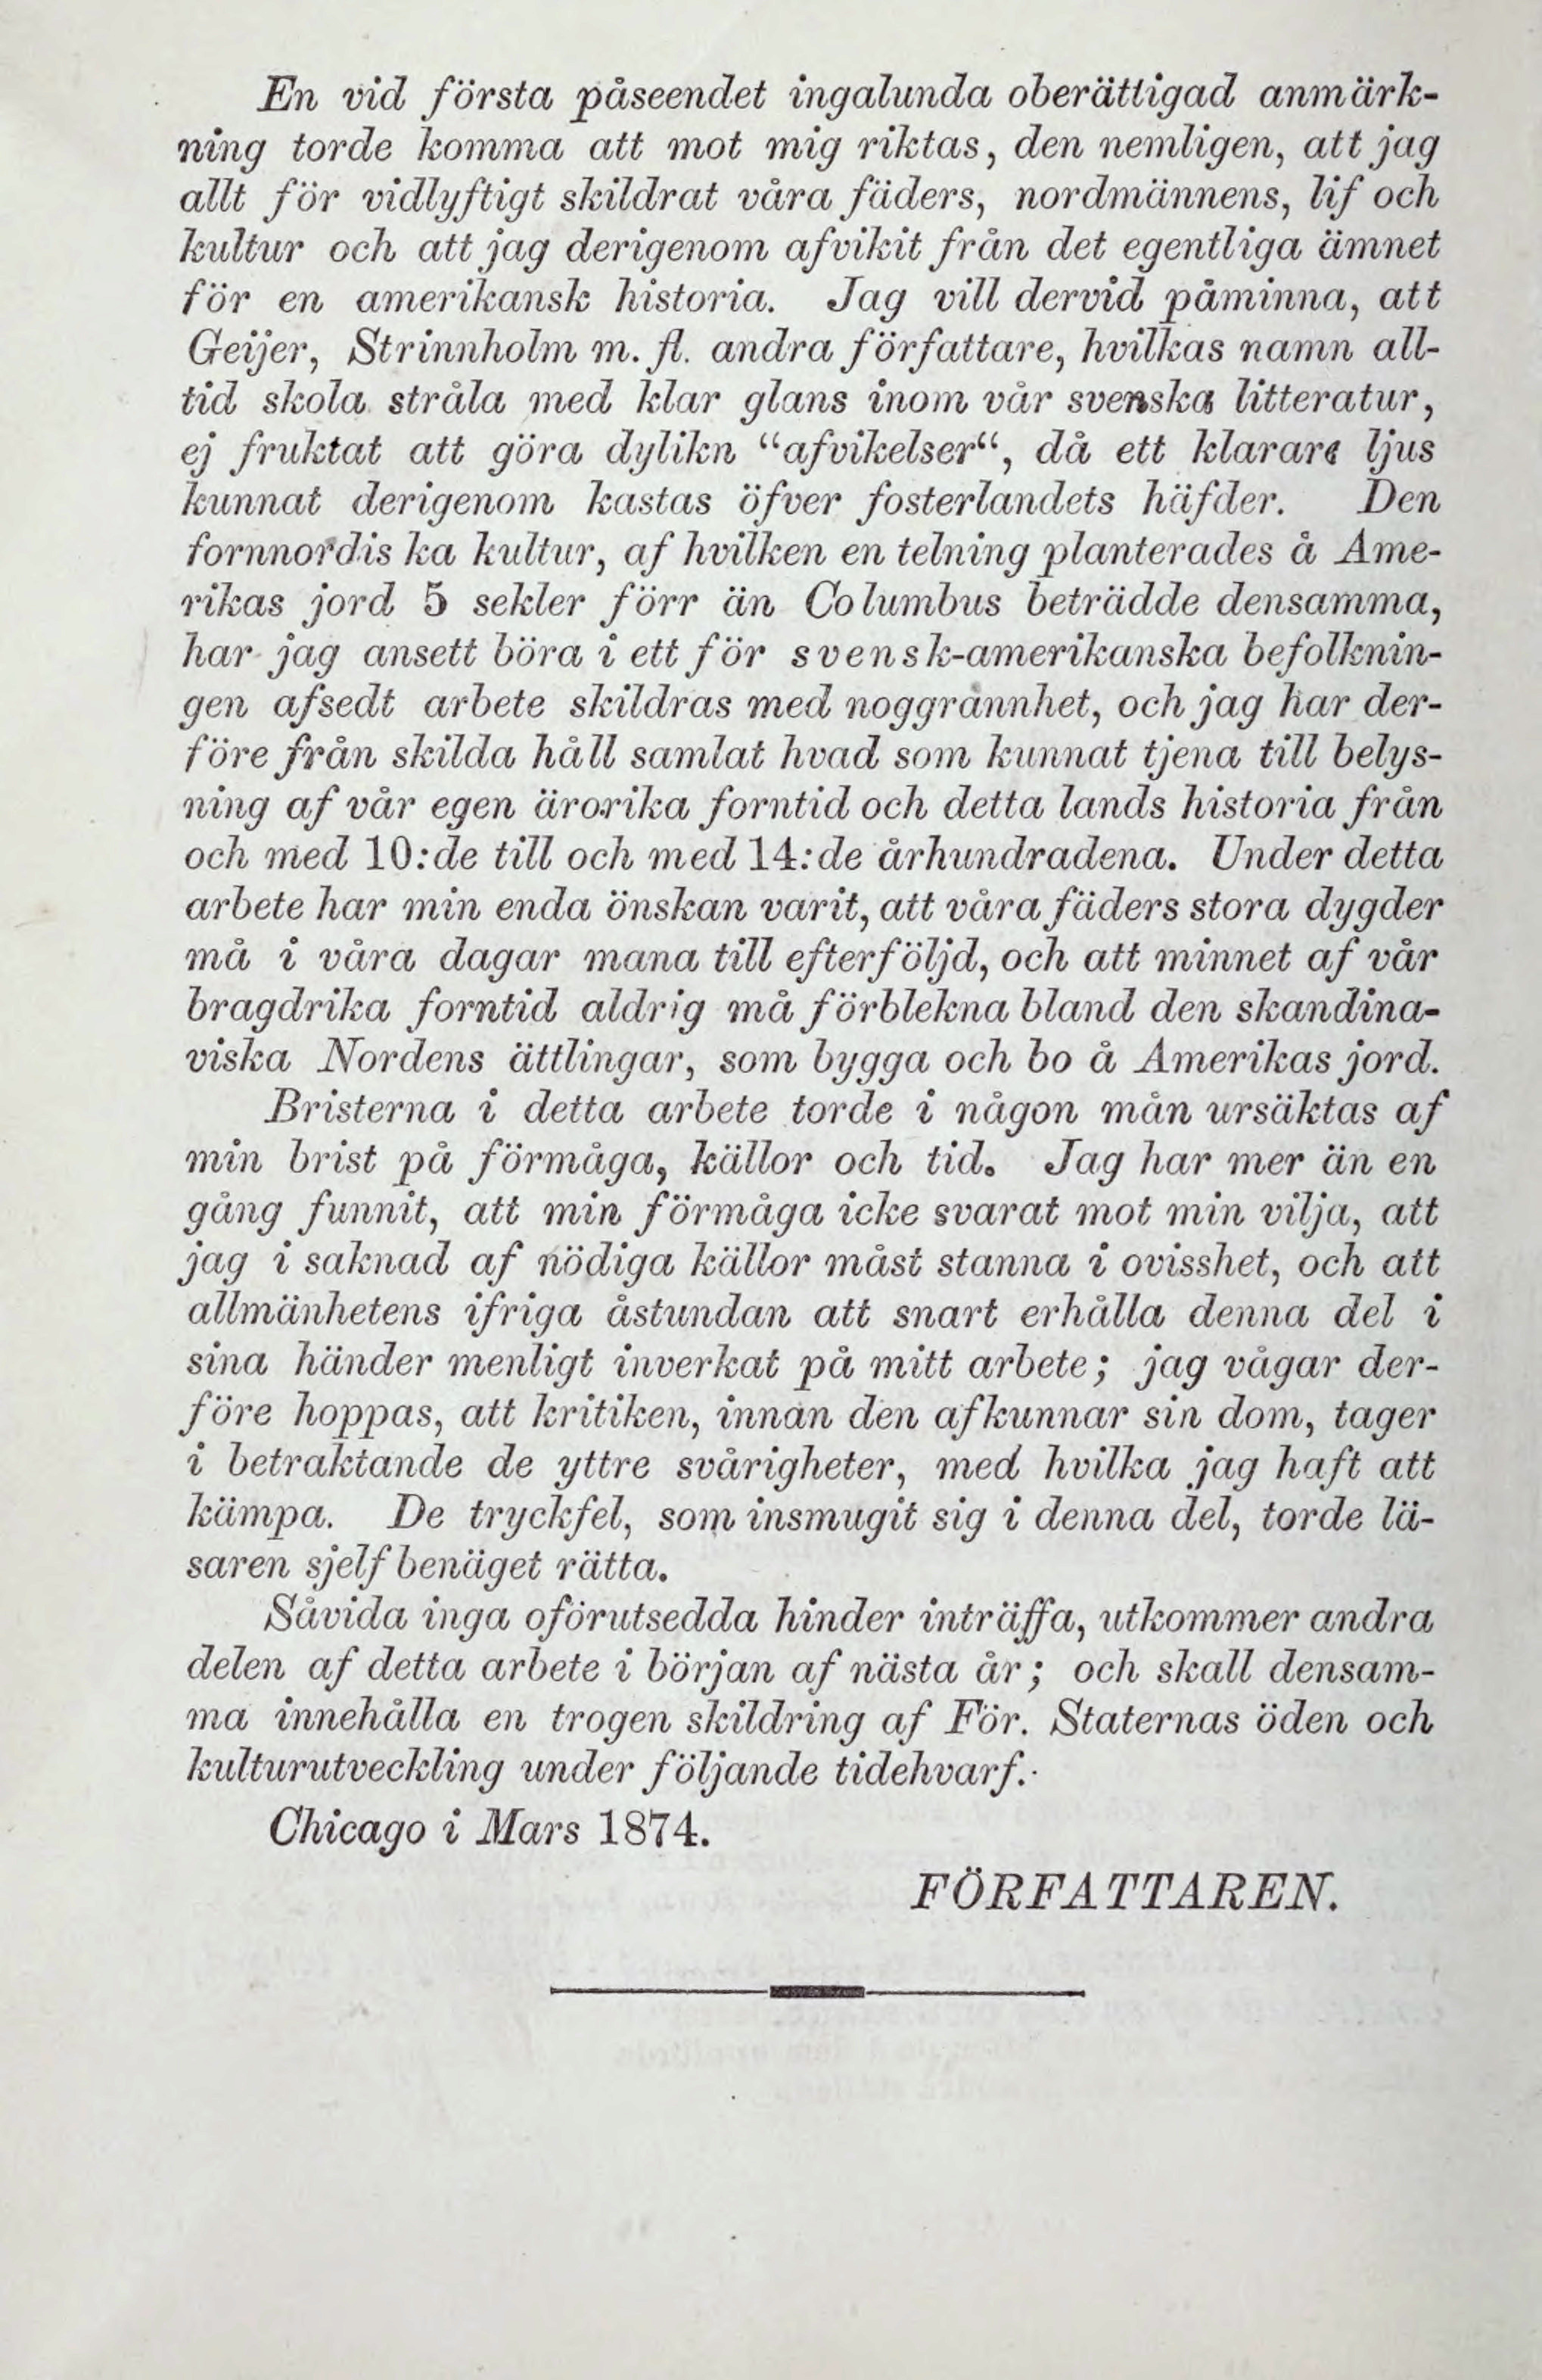 En vid första påseendet ingalunda oberättigad anmärk-
ning torde komma att mot mig riktas, den nemligen, att jag
allt för vidlyftigt skildrat våra fäders, nordmännens, lif och
kultur och att jag derigenom afvikit från det egentliga ämnet
för en amerikansk historia. Jag vill dervid påminna, att
Geijer, Strinnholm m. fl. andra författare, hvilkas namn all-
tid skola stråla med klar glans inom vår svenska litteratur,
ej fruktat att göra dylikn “afvikelser“, då ett klarare ljus
kunnat derigenom kastas öfver fosterlandets häfder. Den
fornnordis ka kultur, af hvilken en telning planterades å Ame-
rikas jord 5 sekler förr än Columbus beträdde densamma,
har jag ansett böra i ett för svensk-amerikanska befolknin-
gen afsedt arbete skildras med noggrannhet, och jag har der-
före från skilda håll samlat hvad som kunnat tjena till belys-
ning af vår egen ärorika forntid och detta lands historia från
och med 10:de till och med 14:de århundradena. Under detta
arbete har min enda önskan varit, att våra fäders stora dygder
må i våra dagar mana till efterföljd, och att minnet af vår
bragdrika forntid aldrig må förblekna bland den skandina-
viska Nordens ättlingar, som bygga och bo å Amerikas jord.
Bristerna i detta arbete torde i någon mån ursäktas af
min brist på förmåga, källor och tid. Jag har mer än en
gång funnit, att min förmåga icke svarat mot min vilja, att
jag i saknad af nödiga källor måst stanna i ovisshet, och att
allmänhetens ifriga åstundan att snart erhålla denna del i
sina händer menligt inverkat på mitt arbete; jag vågar der-
före hoppas, att kritiken, innan den afkunnar sin dom, tager
i betraktande de yttre svårigheter, med hvilka jag haft att
kämpa. De tryckfel, som insmugit sig i denna del, torde lä-
saren sjelf benäget rätta.
Såvida inga oförutsedda hinder inträffa, utkommer andra
delen af detta arbete i början af nästa år; och skall densam-
ma innehålla en trogen skildring af För. Staternas öden och
kulturutveckling under följande tidehvarf.
Chicago i Mars 1874.
FÖRFATTAREN.